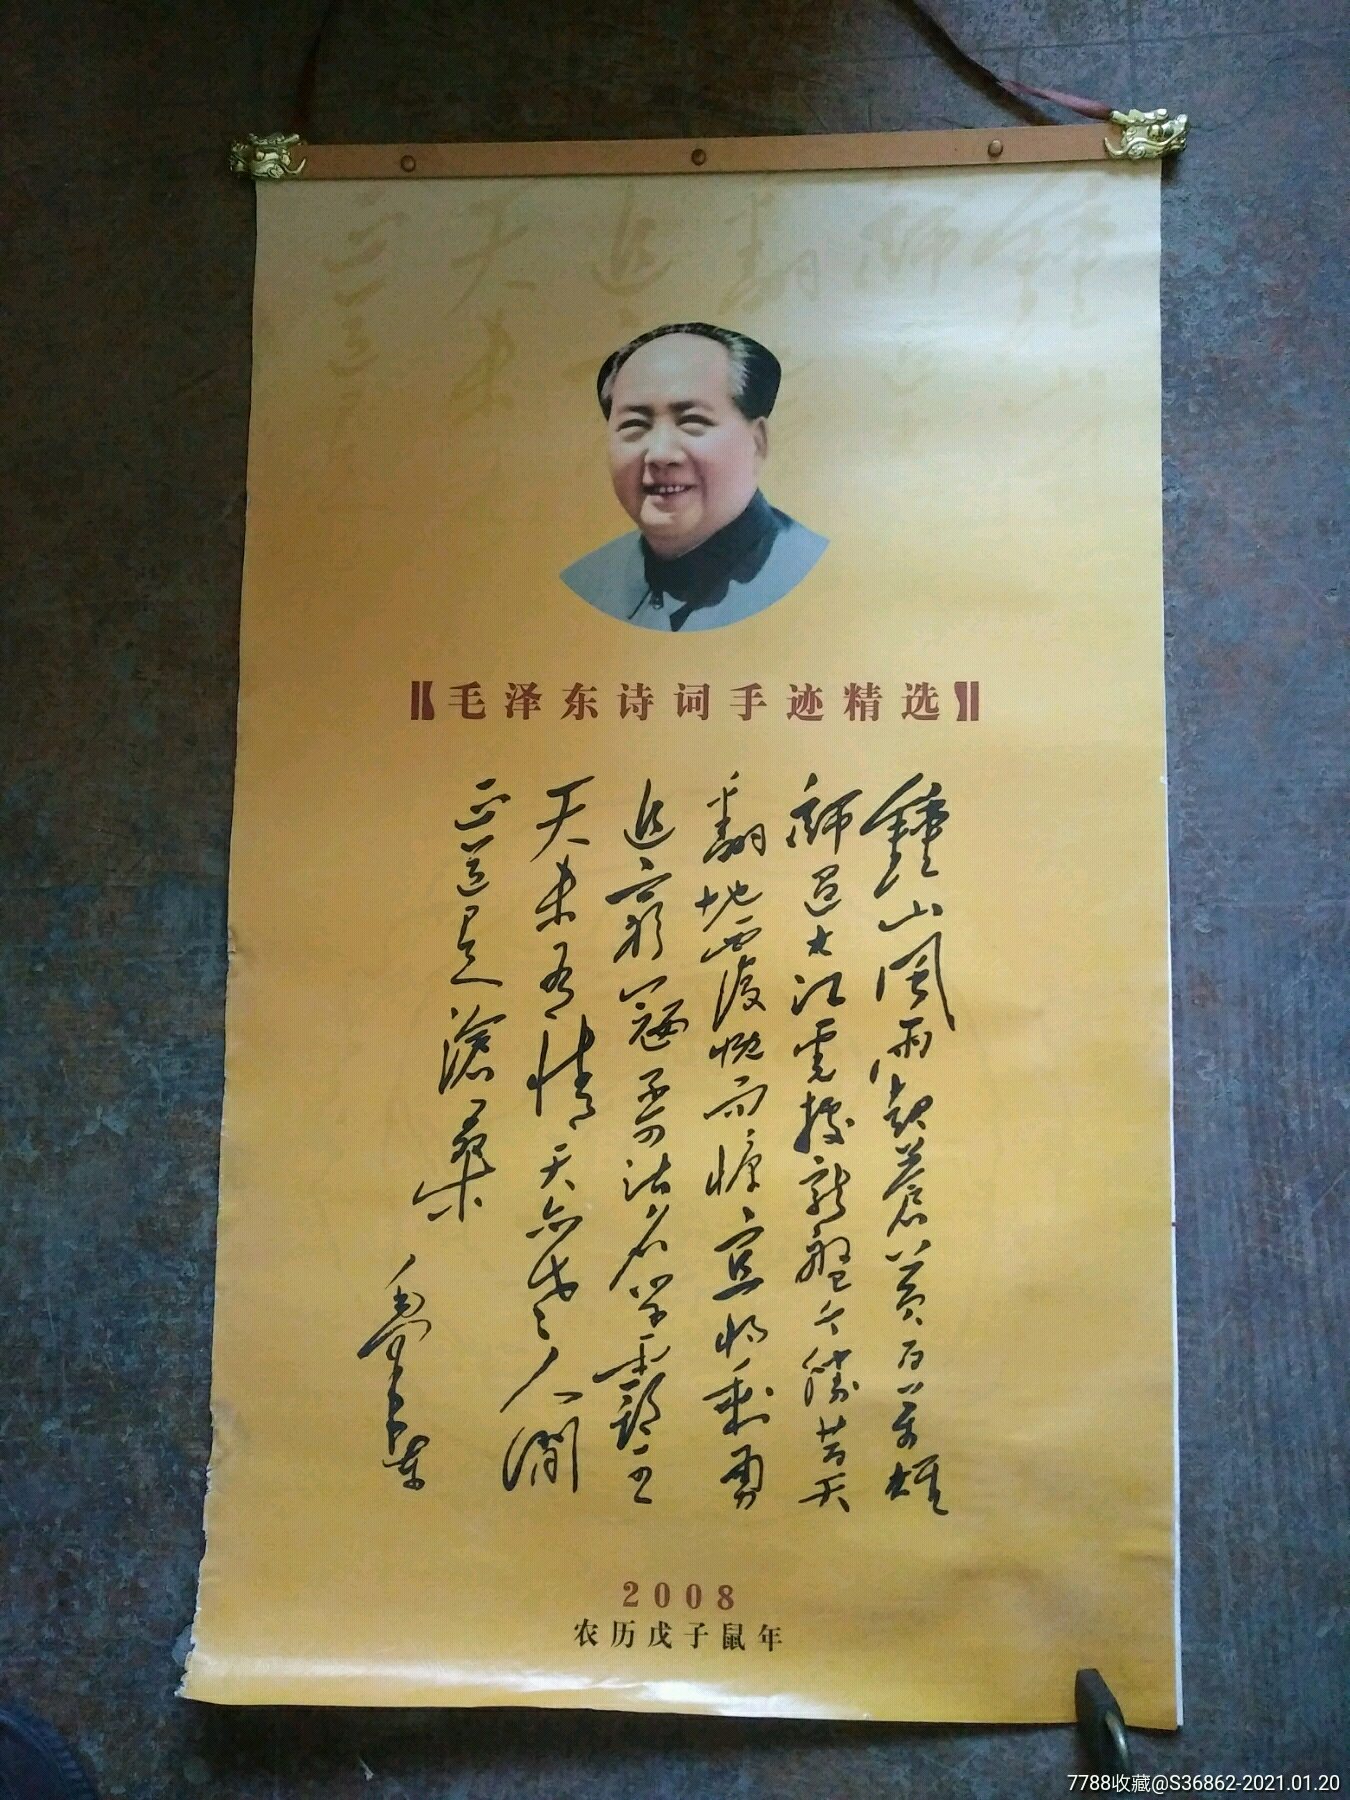 毛泽东诗词手迹精选
鍾山風雨起蒼黃百萬雄
師過大江虎據龍盤今勝昔天
翻地覆慨而慷宜將剩勇
追窮寇不可沽名學霸王
天若有情天亦老人間
正道是滄桑
毛澤東
2008
农历戊子鼠年
7788收藏@S36862-2021.01.20